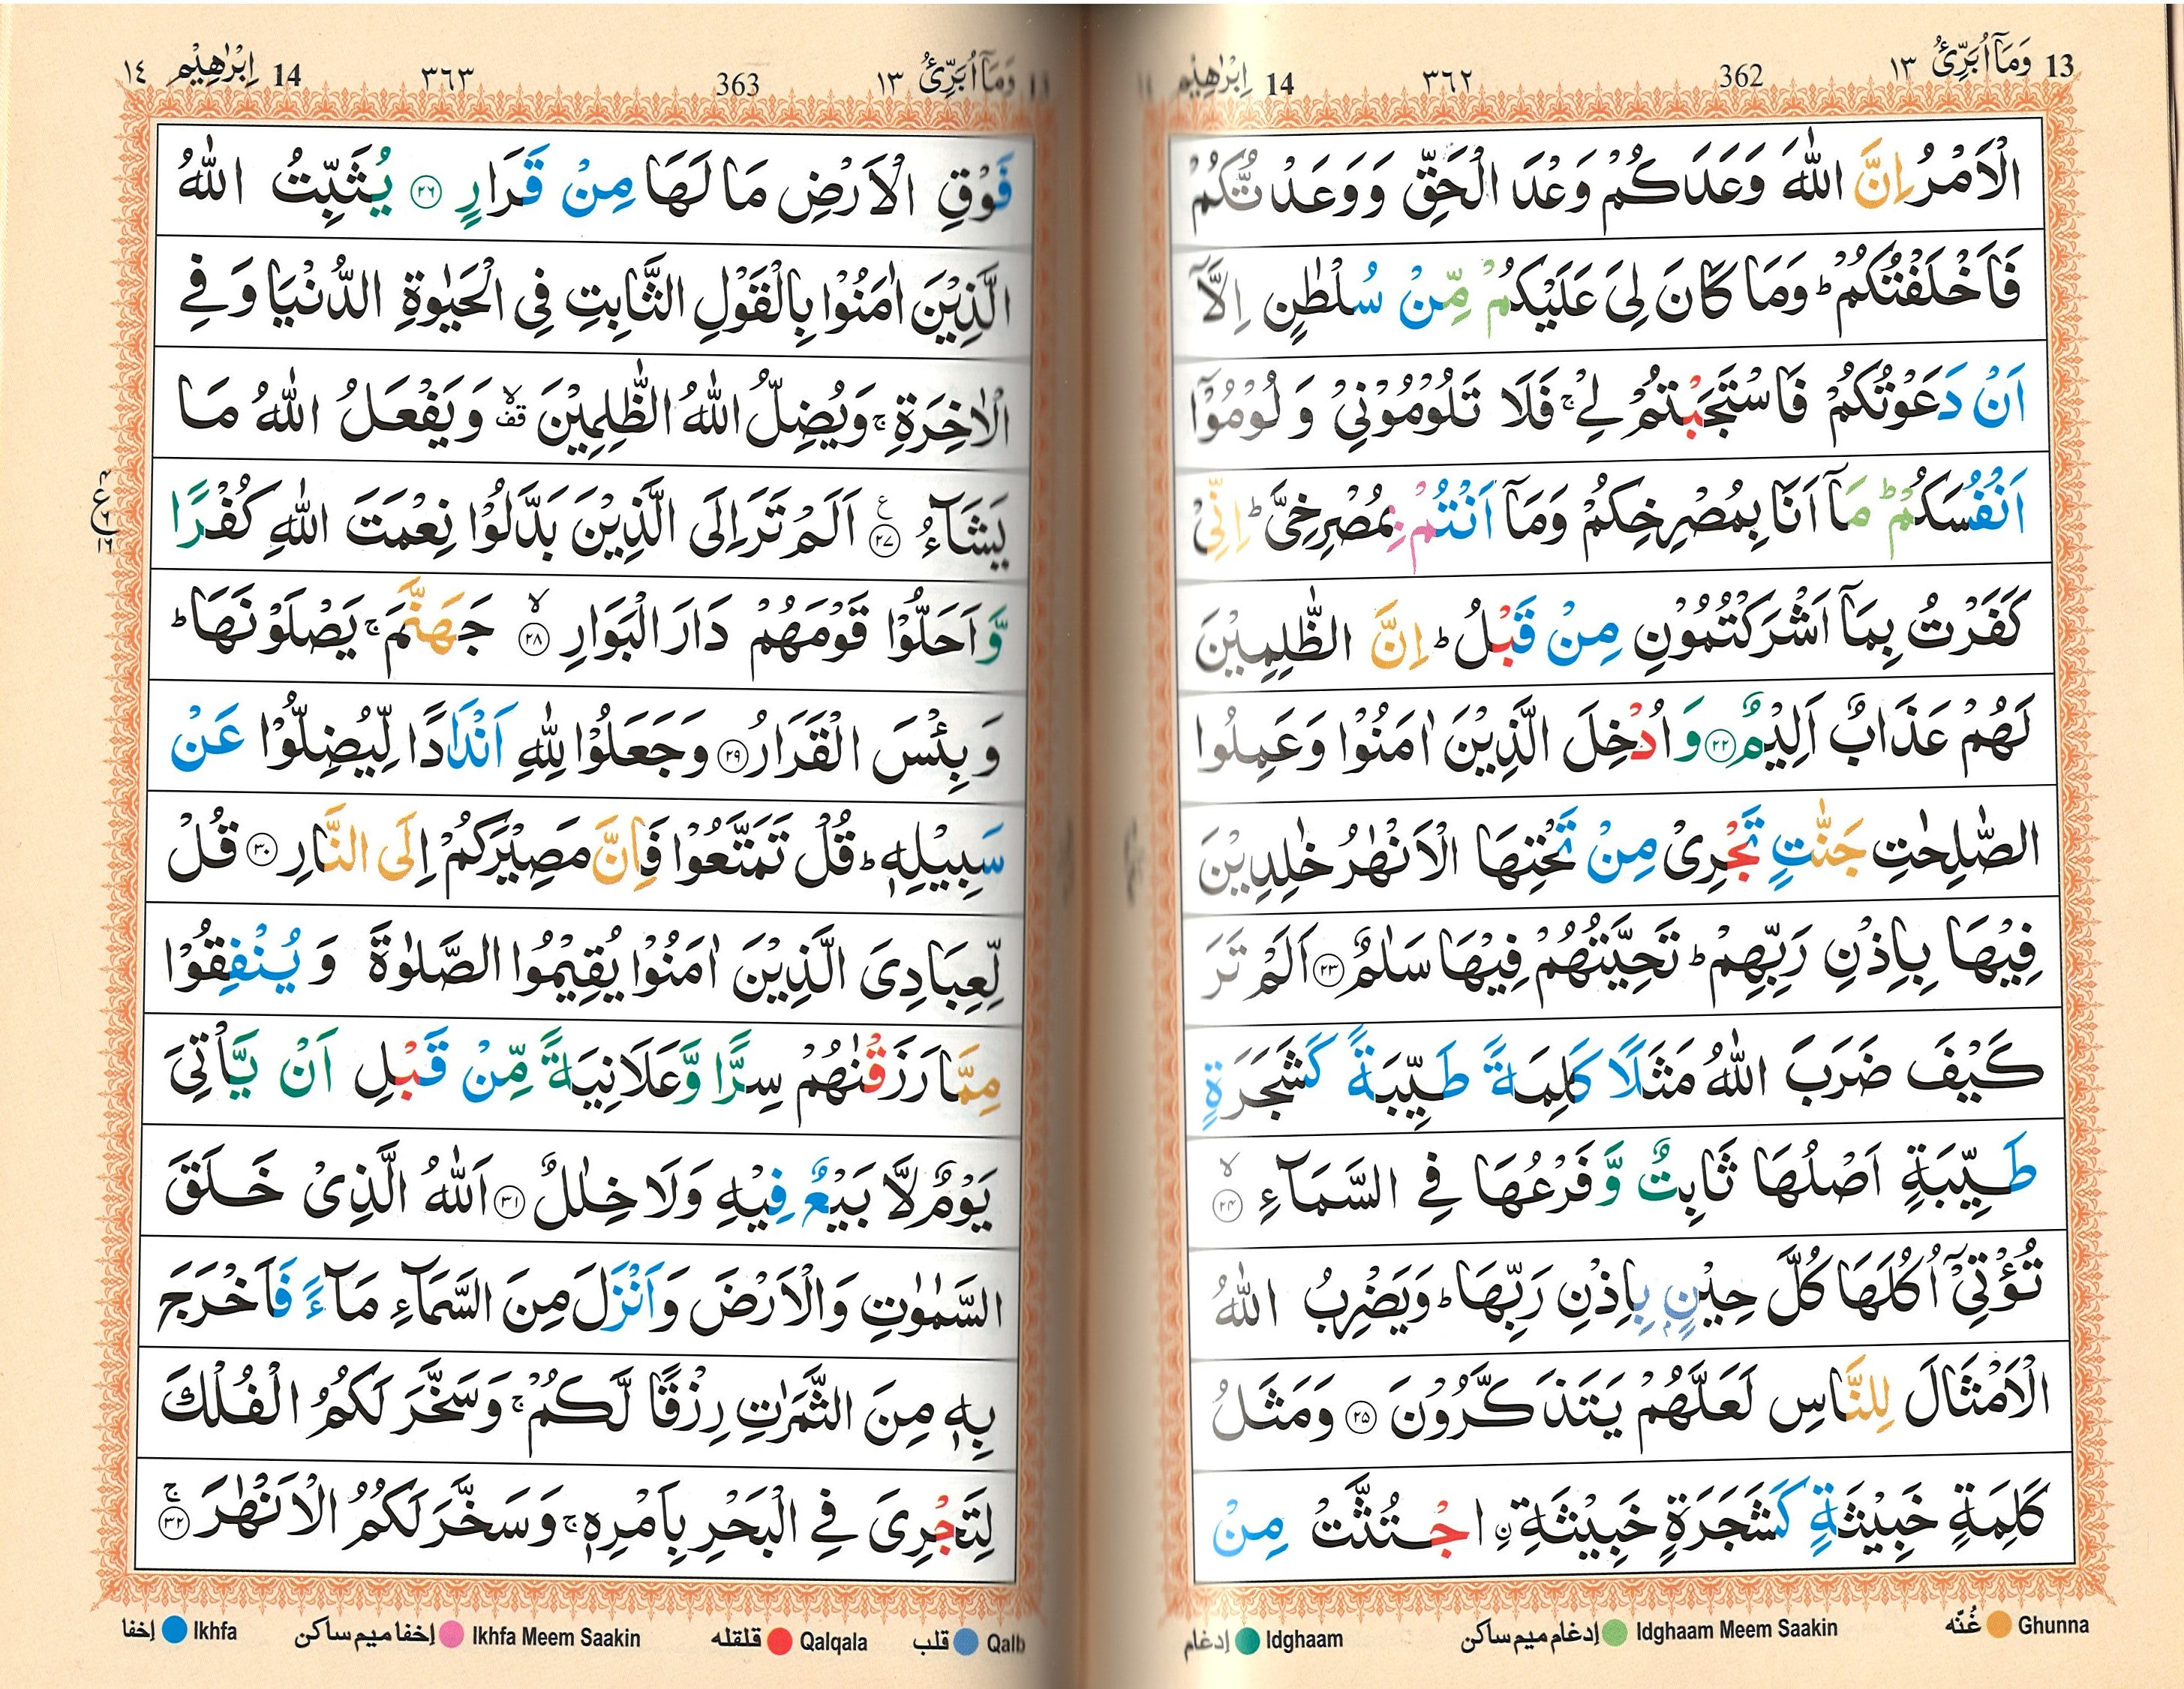 13 وَمَآ اُبَرِّئُ ١٣ 362 ٣٦٢ 14 اِبْرٰهِيْم
الْاَمْرُ اِنَّ اللّٰهَ وَعَدَكُمْ وَعْدَ الْحَقِّ وَوَعَدْتُّكُمْ
فَاَخْلَفْتُكُمْ ؕ وَمَا كَانَ لِيَ عَلَيْكُمْ مِّنْ سُلْطٰنٍ اِلَّاۤ
اَنْ دَعَوْتُكُمْ فَاسْتَجَبْتُمْ لِيْ ۚ فَلَا تَلُوْمُوْنِيْ وَ لُوْمُوْۤا
اَنْفُسَكُمْ ؕ مَاۤ اَنَا بِمُصْرِخِكُمْ وَمَاۤ اَنْتُمْ بِمُصْرِخِيَّ ؕ اِنِّيْ
كَفَرْتُ بِمَاۤ اَشْرَكْتُمُوْنِ مِنْ قَبْلُ ؕ اِنَّ الظّٰلِمِيْنَ
لَهُمْ عَذَابٌ اَلِيْمٌ ﴿٢٢﴾ وَاُدْخِلَ الَّذِيْنَ اٰمَنُوْا وَعَمِلُوا
الصّٰلِحٰتِ جَنّٰتٍ تَجْرِيْ مِنْ تَحْتِهَا الْاَنْهٰرُ خٰلِدِيْنَ
فِيْهَا بِاِذْنِ رَبِّهِمْ ؕ تَحِيَّتُهُمْ فِيْهَا سَلٰمٌ ﴿٢٣﴾ اَلَمْ تَرَ
كَيْفَ ضَرَبَ اللّٰهُ مَثَلًا كَلِمَةً طَيِّبَةً كَشَجَرَةٍ
طَيِّبَةٍ اَصْلُهَا ثَابِتٌ وَّفَرْعُهَا فِي السَّمَآءِ ۙ ﴿٢٤﴾
تُؤْتِيْۤ اُكُلَهَا كُلَّ حِيْنٍۭ بِاِذْنِ رَبِّهَا ؕ وَيَضْرِبُ اللّٰهُ
الْاَمْثَالَ لِلنَّاسِ لَعَلَّهُمْ يَتَذَكَّرُوْنَ ﴿٢٥﴾ وَمَثَلُ
كَلِمَةٍ خَبِيْثَةٍ كَشَجَرَةٍ خَبِيْثَةِ ِۨاجْتُثَّتْ مِنْ
Ghunna غُنّه Idghaam Meem Saakin إدغام ميم ساكن Idghaam إدغام
وَمَآ اُبَرِّئُ ١٣ 363 ٣٦٣ 14 اِبْرٰهِيْم ١٤
فَوْقِ الْاَرْضِ مَا لَهَا مِنْ قَرَارٍ ﴿٢٦﴾ يُثَبِّتُ اللّٰهُ
الَّذِيْنَ اٰمَنُوْا بِالْقَوْلِ الثَّابِتِ فِي الْحَيٰوةِ الدُّنْيَا وَفِي
الْاٰخِرَةِ ۚ وَيُضِلُّ اللّٰهُ الظّٰلِمِيْنَ قف ۙ وَيَفْعَلُ اللّٰهُ مَا
يَشَآءُ ﴿٢٧﴾ ع اَلَمْ تَرَ اِلَى الَّذِيْنَ بَدَّلُوْا نِعْمَتَ اللّٰهِ كُفْرًا
٤ ع ٦ ١٦
وَّاَحَلُّوْا قَوْمَهُمْ دَارَ الْبَوَارِ ۙ ﴿٢٨﴾ جَهَنَّمَ ۚ يَصْلَوْنَهَا ؕ
وَبِئْسَ الْقَرَارُ ﴿٢٩﴾ وَجَعَلُوْا لِلّٰهِ اَنْدَادًا لِّيُضِلُّوْا عَنْ
سَبِيْلِهٖ ؕ قُلْ تَمَتَّعُوْا فَاِنَّ مَصِيْرَكُمْ اِلَى النَّارِ ﴿٣٠﴾ قُلْ
لِّعِبَادِيَ الَّذِيْنَ اٰمَنُوْا يُقِيْمُوا الصَّلٰوةَ وَيُنْفِقُوْا
مِمَّا رَزَقْنٰهُمْ سِرًّا وَّعَلَانِيَةً مِّنْ قَبْلِ اَنْ يَّاْتِيَ
يَوْمٌ لَّا بَيْعٌ فِيْهِ وَلَا خِلٰلٌ ﴿٣١﴾ اَللّٰهُ الَّذِيْ خَلَقَ
السَّمٰوٰتِ وَالْاَرْضَ وَاَنْزَلَ مِنَ السَّمَآءِ مَآءً فَاَخْرَجَ
بِهٖ مِنَ الثَّمَرٰتِ رِزْقًا لَّكُمْ ۚ وَسَخَّرَ لَكُمُ الْفُلْكَ
لِتَجْرِيَ فِي الْبَحْرِ بِاَمْرِهٖ ۚ وَسَخَّرَ لَكُمُ الْاَنْهٰرَ ۚ ﴿٣٢﴾
Qalb قلب Qalqala قلقله Ikhfa Meem Saakin إخفا ميم ساكن Ikhfa إخفا